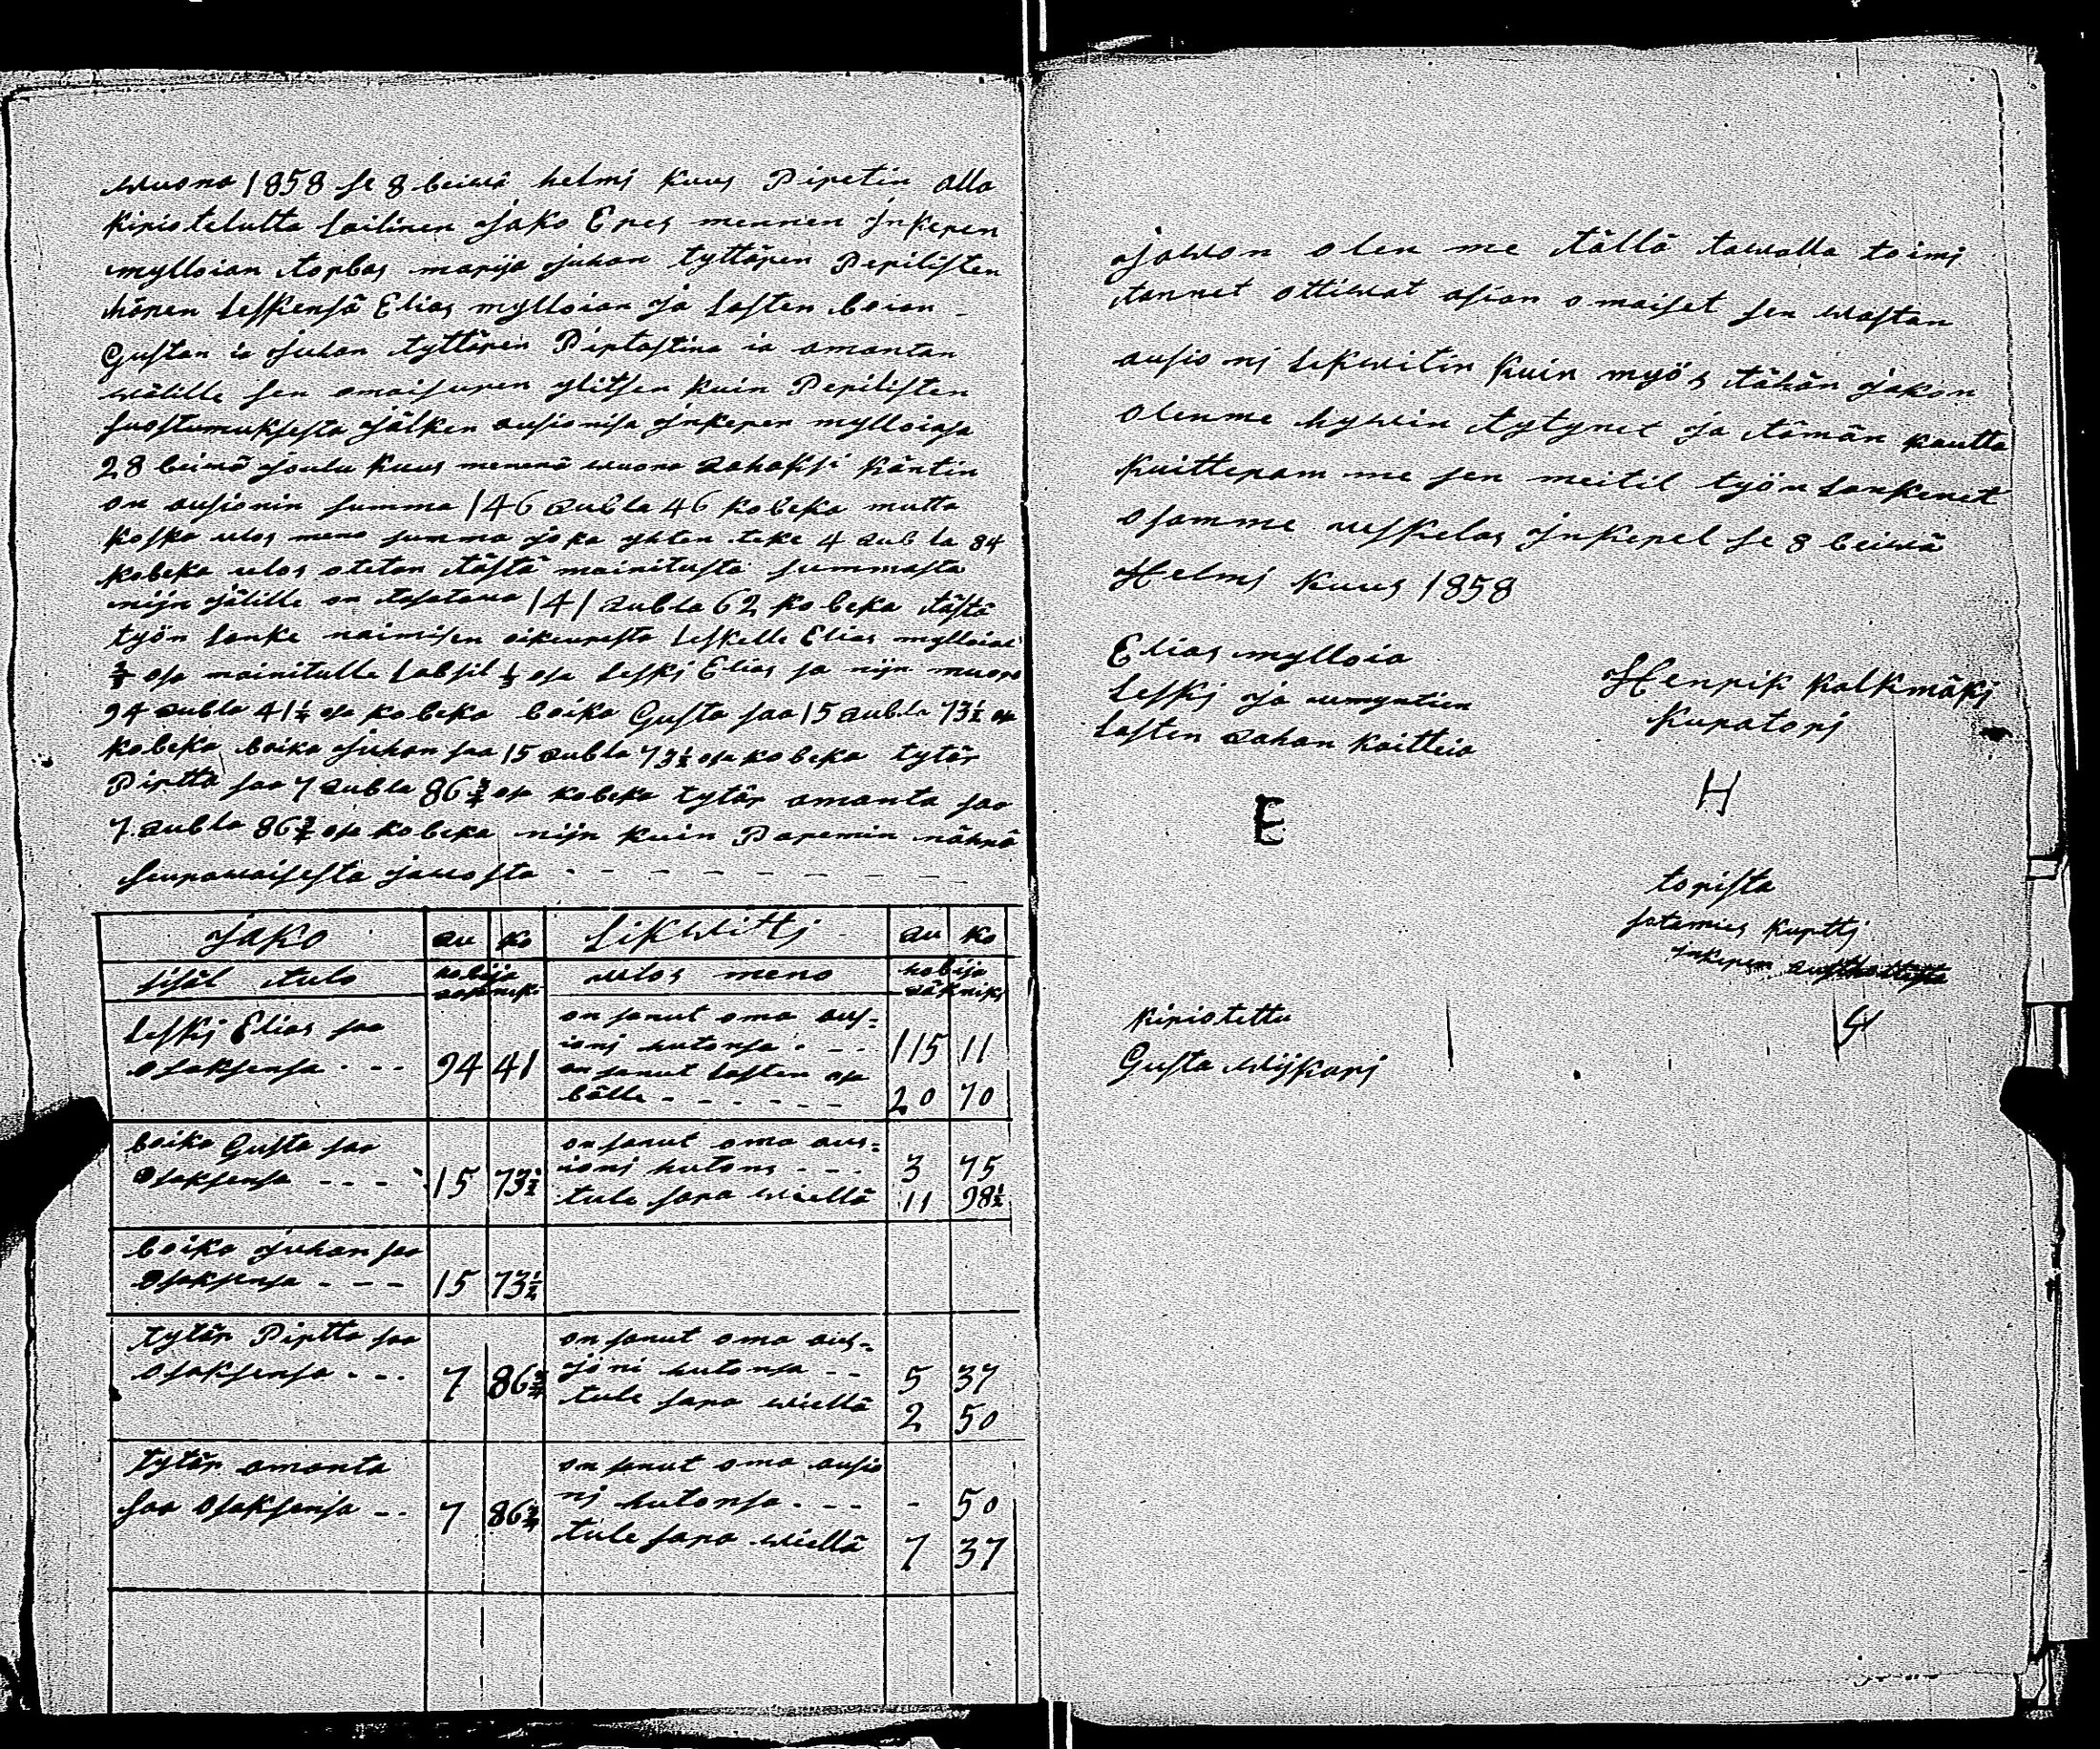 wuona 1858 se 8 beiwä helmj kuus Piretin alla
kiriotelutta lailinen Jako Eres mennen Jnkeren
mylloian torbas marija Juhan tyttären Perilisten
hänen leskensä Elias mylloian Ja lasten boian
Gustan ia Juhan tyttären Pirtastina ia amantan
wälille sen omaisuren ylitsen kuin Perilisten
suostumuksesta Jälken ausionisa Jnkeren mylloiasa
28 beiwä Joulu kuus menenä wuona rahaksi käntin
on ausionin summa 146 rubla 46 kobeka mutta
koska ulos meno summa Joka yhten teke 4 rub la 84
kobeka ulos otetan tästä mainitusta summasta
nijn Jälille on tasatawa 141 rubla 62 kobeka tästä
työn lanke naimisen oikeuresta leskelle Elias mylloial
⅔ osa mainitulle labsil ⅓ osa leskj Elias sa nijn muoro
94 rubla 41¼ osa kobeka boika Gusta saa 15 rubla 73½ osa
kobeka boika Juhan saa 15 rubla 73½ osa kobeka tytär
Pirtta saa 7 rubla 86¾ osa kobeka tytär amanta saa
7 rubla 86¾ osa kobeka nijn kuin Paremin nähnä
seurawaisesta Jawosta - - - - - - - -
Jako ru ko likwittj ru ko
sisäl tulo hobija ulos meno hobija
rahnik. räkniks
leskj Elias saa
osaksensa - - - 94 41
on sanut oma aus=
ionj hutonsa - - - 115 11
on sanut lasten osa
bälle - - - - - - 20 70
boika Gusta saa
osaksensa - - - 15 73½
on sanut oma aus=
ionj hutons - - - 3 75
tule sara wiellä 11 98½
boika Juhan saa
osaksensa - - - 15 73½
tytär Pirtta saa
osaksensa - - - 7 86¾
on sanut oma aus=
joni hutonsa - - 5 37
tule sara wiellä 2 50
tytär amanta
saa osaksensa - - 7 86¾
on sanut oma ausio
nj hutonsa - - - - 50
tule sara wiellä 7 37
Jawon olen me tällä tawalla toimj
tannet ottiwat asian omaiset sen wastan
ausio nj likwitin kuin myös tähän Jakon
olenme hywin tytynet Ja tämän kautta
kuitteram me sen meitil työn lankenet
osamme uskelas Jnkerel se 8 beiwä
Helmj kuus 1858
Elias mylloia
leskj Ja aumyntien
lasten rahan kaitteia
E
Henrik kalkmäkj
kuratorj
H
torista
satamies kurttj
Jnkeren
kiriotettu
Gusta wijkarj